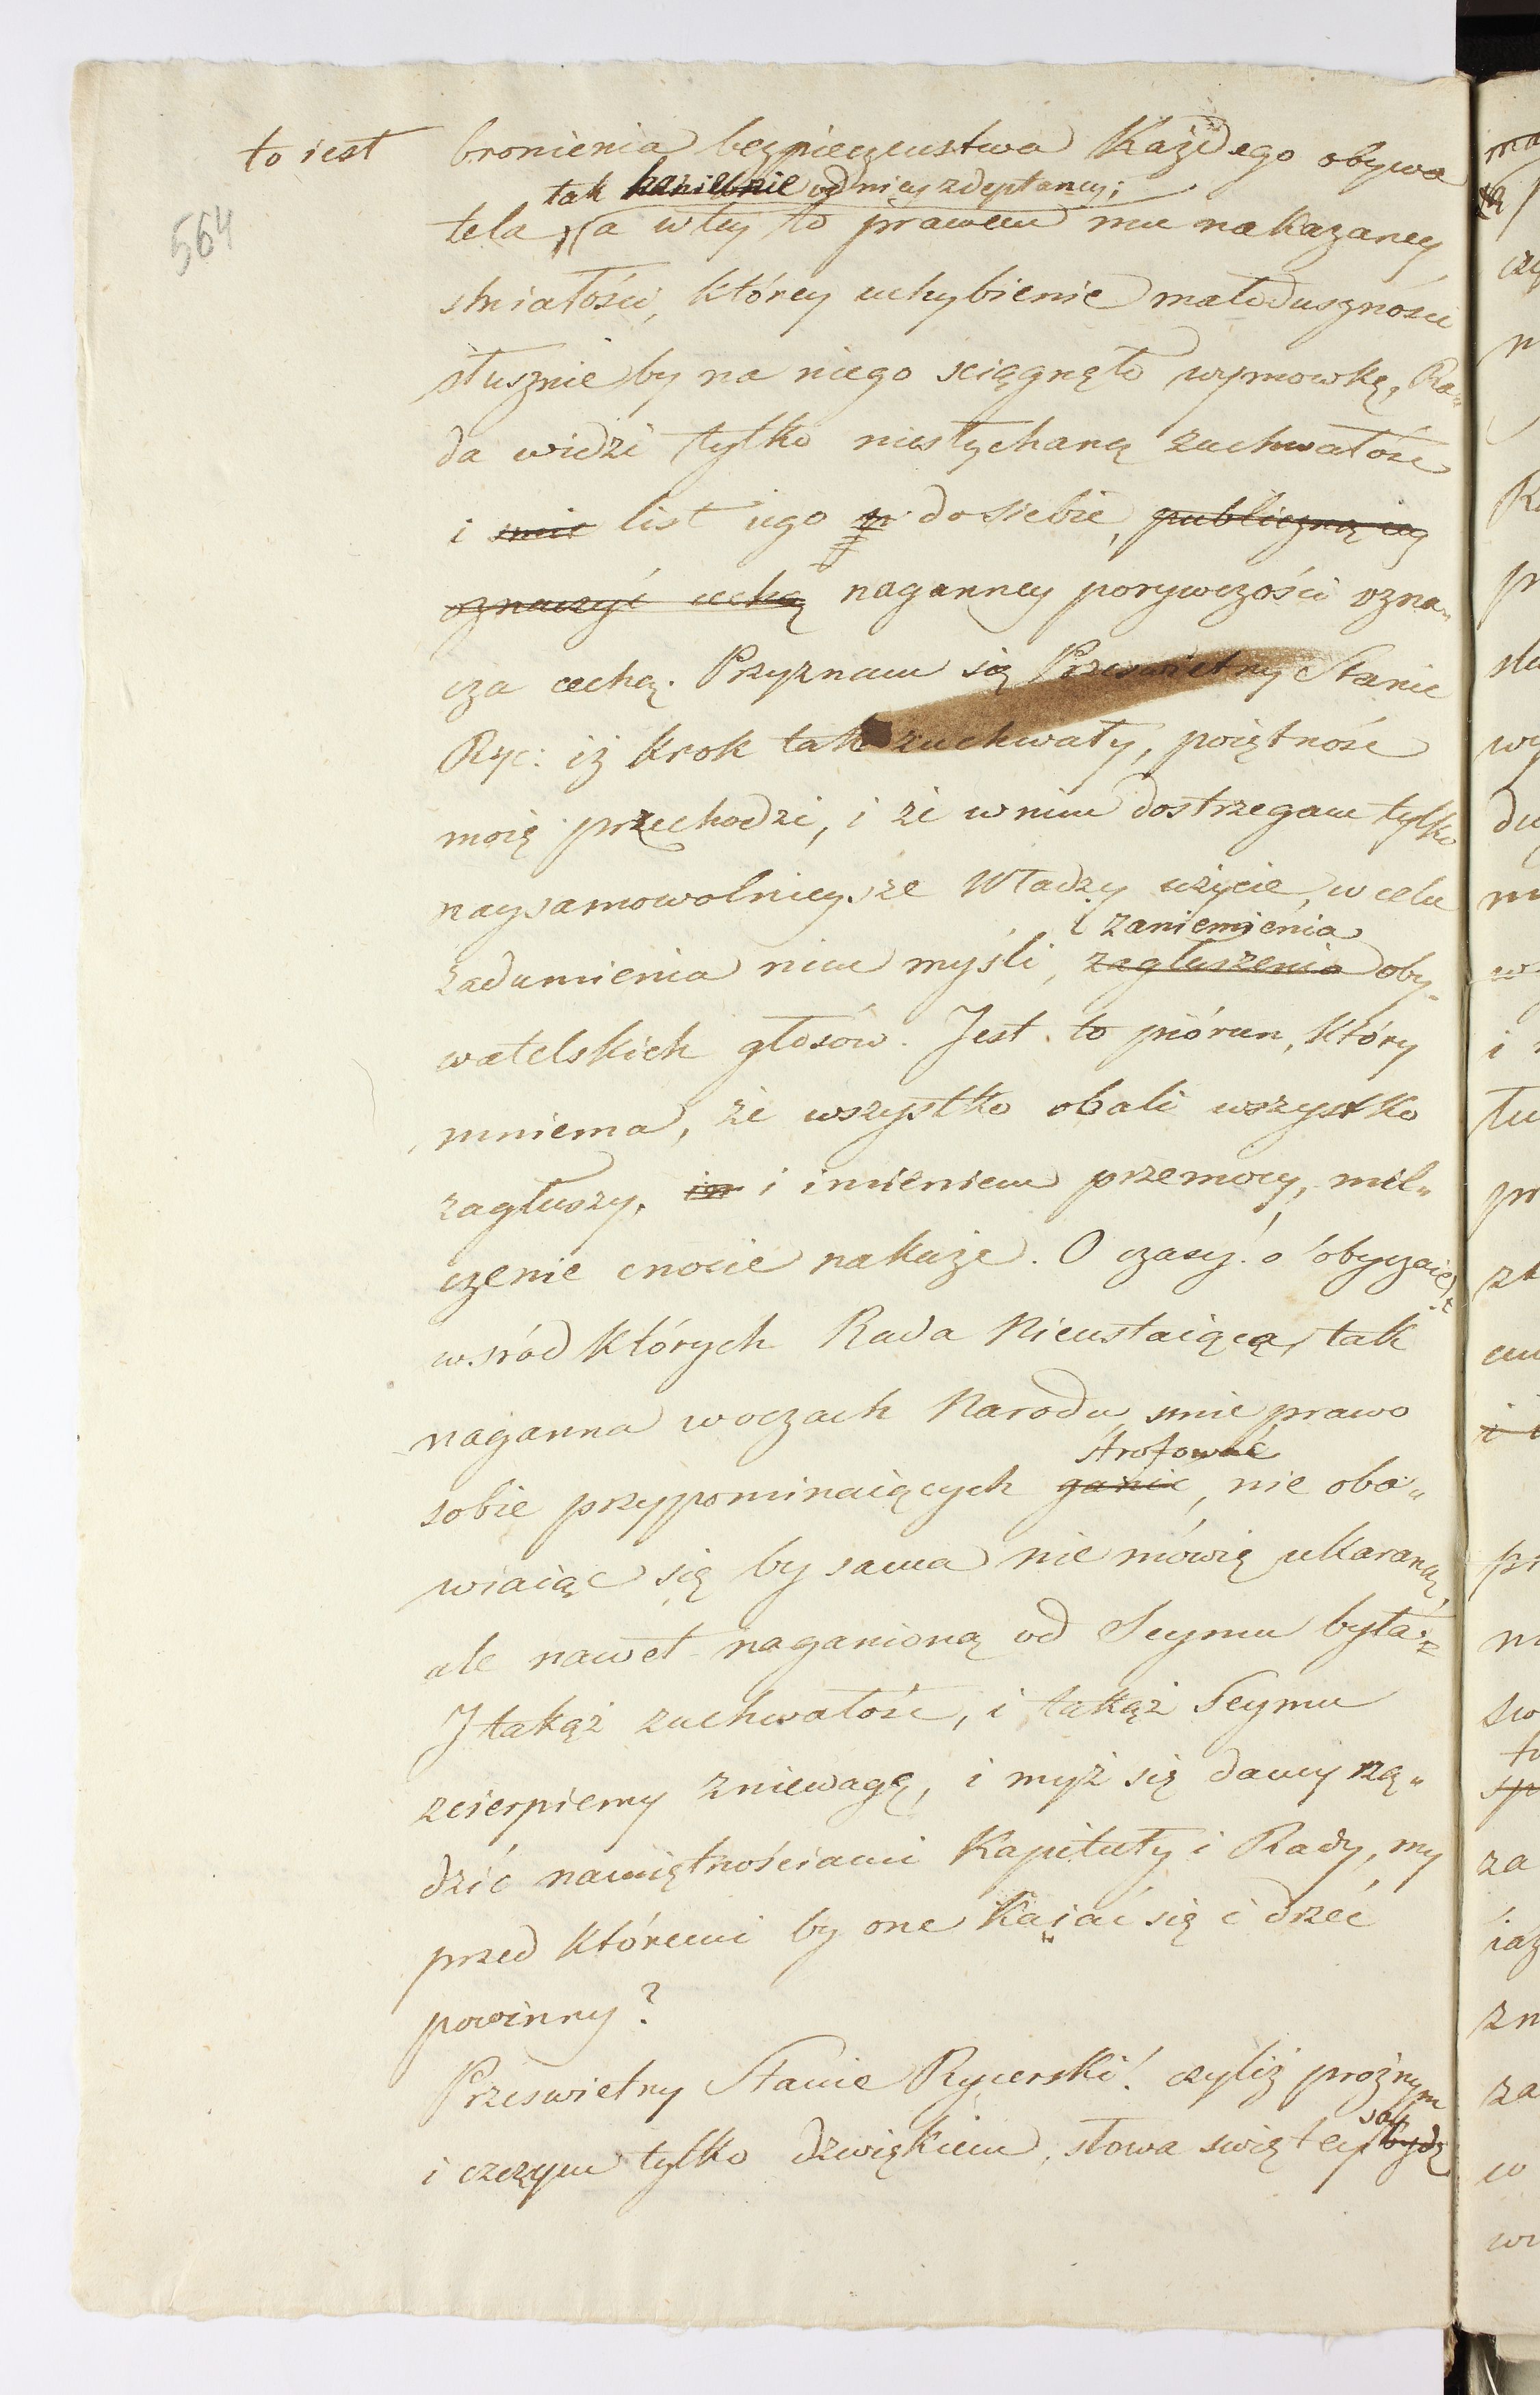 to iest bronienia bezpieczenstwa Każdego obywa
564
tak haniebnie od niey zdeptaney;
tela, a w tey to prawem mu nakazaney
smiałości, którey uchybienie małoduszności
słusznie by na niego sciągnęło wymowkę, Ra„
da widzi tylko niesłychaną zuchwałośc
i smie list iego w do siebie, publiczną ieg
oznaczyć cechą naganney porywczości ozna„
cza cechą. Przyznam się Przeswietny Stanie
Ryc: iż krok tak zuchwały, poiętnośc
moię przechodzi, i że w nim dostrzegam tylko
naysamowolnieysze Władzy użycie, w celu
zaniemienia
zadumienia nim myśli, zagłuszenia oby„
watelskich głosów. Jest to piórun, który
mniema, że wszystko obali wszystko
zagłuszy, im i imieniem przemocy, mil„
czenie cnocie nakaże. O czasy! o obyczaie!
wsród których Rada Nieustaiąca, tak
naganna w oczach Narodu smie prawo
strofować
sobie przypominaiących ganic, nie oba„
wiaiąc się by sama nie mówię ukaraną,
ale nawet naganioną od Seymu była.
I takąż zuchwałośc, i takąż Seymu
zcierpiemy zniewagę, i myż się damy rzą„
dzić namiętnościami Kapituły i Rady, my
przed któremi by one kaiać się i drżeć
powinny?
Przeswietny Stanie Rycerski! czyliż próżnym
są
i czczym tylko dzwiękiem, słowa swiętey będą